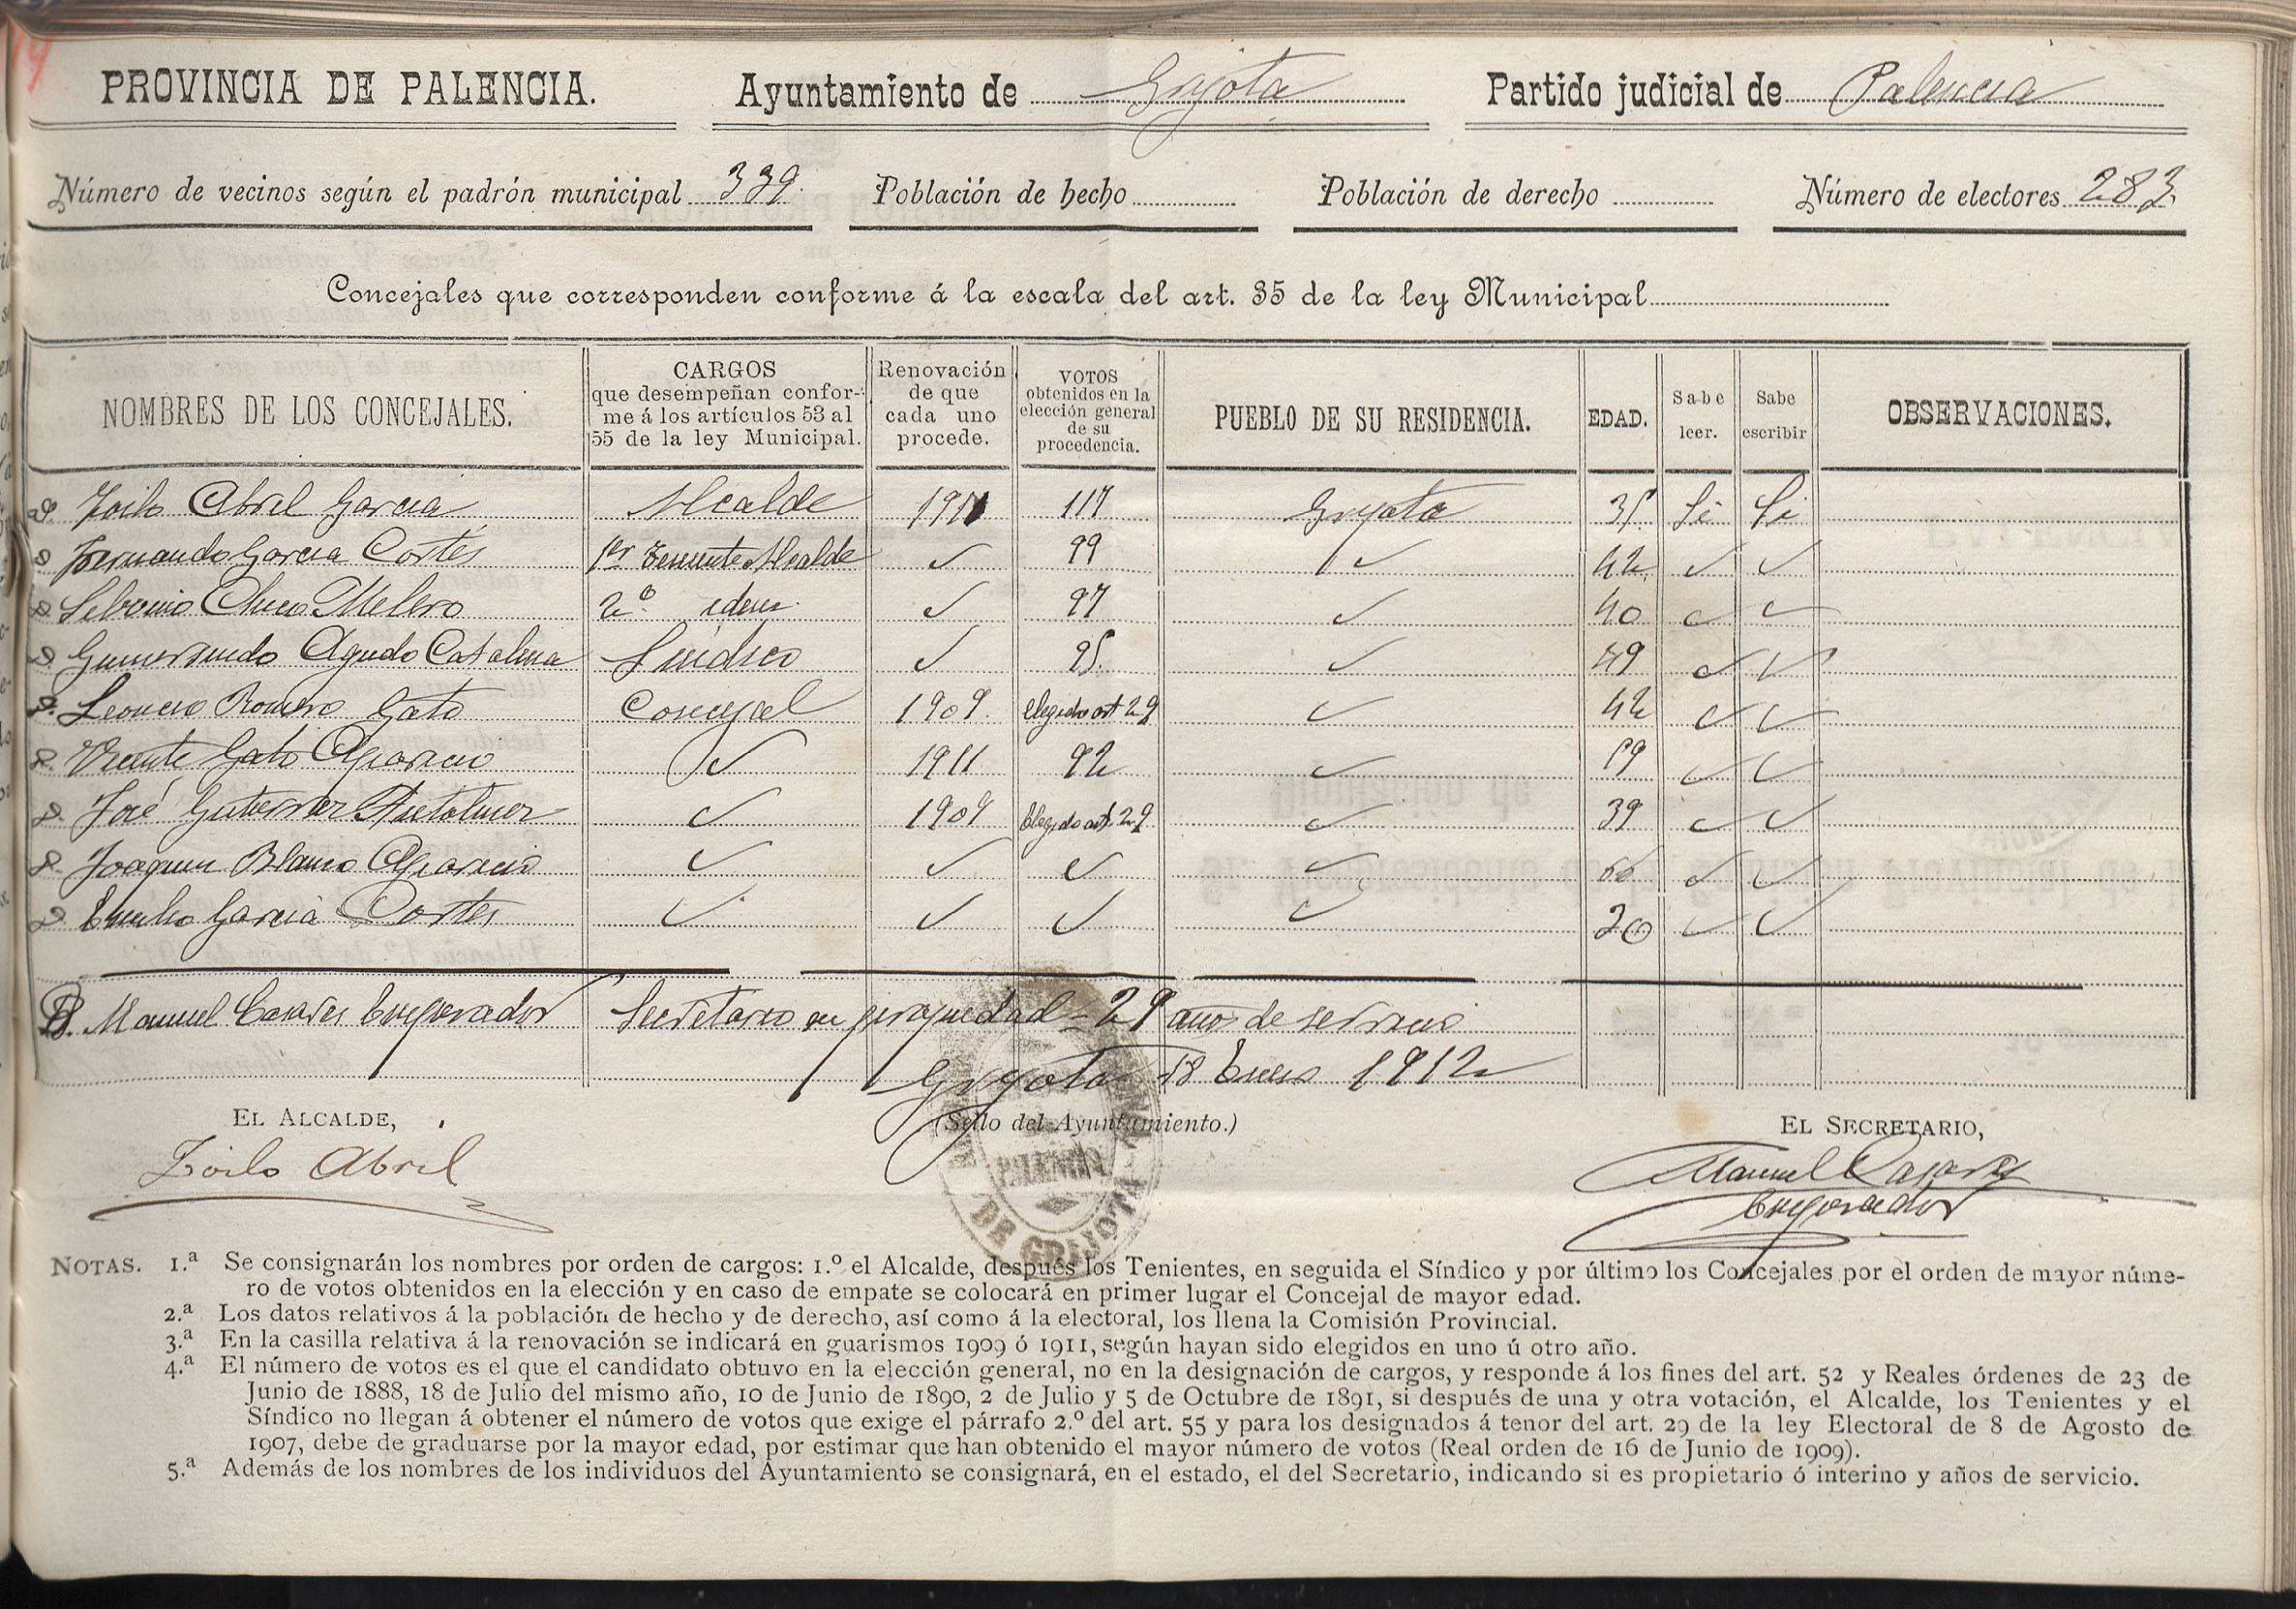 PROVINCIA DE PALENCIA. Ayuntamiento de Grijota Partido judicial de Palencia
Número de vecinos según el padrón municipal 339. Población de hecho Población de derecho Número de electores 283.
Concejales que corresponden conforme á la escala del art. 35 de la ley Municipal
NOMBRES DE LOS CONCEJALES. CARGOS que desempeñan confor-me á los artículos 53 al 55 de la ley Municipal. Renovación de que cada uno procede. VOTOS obtenidos en la elección general de su procedencia. PUEBLO DE SU RESIDENCIA. EDAD. Sabe leer. Sabe escribir OBSERVACIONES.
D. Zoilo Abril Garcia Alcalde 1911 117 Grijota 35 Si Si
D Fernando Garcia Cortés 1er Teniente Alcalde ✓ 99 ✓ 42 ✓ ✓
D Chico Melero 2º idem. ✓ 97 ✓ 40 ✓ ✓
D. Gumersindo Agudo Catalina Síndico ✓ 95. ✓ 49 ✓ ✓
D. Leoncio Romero Gato Concejal 1909. Elegido art 29 ✓ 42 ✓ ✓
D. Vicente Gato Aparicio ✓ 1911 92 ✓ 59 ✓ ✓
D. José Gutierrez Antolinez ✓ 1909 Elegido art. 29 ✓ 39 ✓ ✓
D. Joaquin Blanco Aparicio ✓ ✓ ✓ ✓ ✓ ✓
D Emilio Garcia Cortes ✓ ✓ ✓ ✓ 30 ✓ ✓
D. Manuel Casares Emperador Secretario en propiedad - 29 años de servicio
Grijota 18 Enero 1912
EL ALCALDE, (Sello del Ayuntamiento.) EL SECRETARIO,
Zoilo Abril Manuel Casares
Emperador
PALENCIA
DE GRIJOTA
NOTAS. 1.ª Se consignarán los nombres por orden de cargos: 1.º el Alcalde, después los Tenientes, en seguida el Síndico y por último los Concejales por el orden de mayor núme-
ro de votos obtenidos en la elección y en caso de empate se colocará en primer lugar el Concejal de mayor edad.
2.ª Los datos relativos á la población de hecho y de derecho, así como á la electoral, los llena la Comisión Provincial.
3.ª En la casilla relativa á la renovación se indicará en guarismos 1909 ó 1911, según hayan sido elegidos en uno ú otro año.
4.ª El número de votos es el que el candidato obtuvo en la elección general, no en la designación de cargos, y responde á los fines del art. 52 y Reales órdenes de 23 de
Junio de 1888, 18 de Julio del mismo año, 10 de Junio de 1890, 2 de Julio y 5 de Octubre de 1891, si después de una y otra votación, el Alcalde, los Tenientes y el
Síndico no llegan á obtener el número de votos que exige el párrafo 2.º del art. 55 y para los designados á tenor del art. 29 de la ley Electoral de 8 de Agosto de
1907, debe de graduarse por la mayor edad, por estimar que han obtenido el mayor número de votos (Real orden de 16 de Junio de 1909).
5.ª Además de los nombres de los individuos del Ayuntamiento se consignará, en el estado, el del Secretario, indicando si es propietario ó interino y años de servicio.